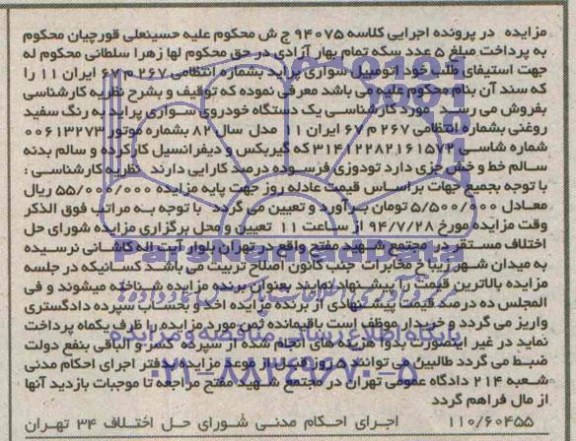 مزایده در پرونده اجرایی کلاسه ۹۴۰۷۵ ج ش محکوم علیه حسینعلی قورچیان محکوم
به پرداخت مبلغ ۵ عدد سکه تمام بهار آزادی در حق محکوم لها زهرا سلطانی محکوم له
جهت استیفای طلب خود اتومبیل سواری پراید بشماره انتظامی ۲۶۷ م ۶۷ ایران ۱۱ را
که سند آن بنام محکوم علیه می باشد معرفی نموده که توقیف و بشرح نظریه کارشناسی
بفروش می رسد مورد کارشناسی یک دستگاه خودروی سواری پراید به رنگ سفید
روغنی بشماره انتظامی ۲۶۷ م ۶۷ ایران ۱۱ مدل سال ۸۲ بشماره موتور ۰۰۶۱۳۲۷۳
شماره شاسی ۳۱۴۱۲۲۸۲۱۶۱۵۷۲ که گیربکس و دیفرانسیل کارکرده و سالم بدنه
سالم خط و خش جزی دارد تودوزی فرسوده درصد کارایی دارند نظریه کارشناسی :
با توجه بجمیع جهات براساس قیمت عادله روز جهت پایه مزایده ۵۵/۰۰۰/۰۰۰ ریال
معادل ۵/۵۰۰/۰۰۰ تومان برآورد و تعیین می گردد با توجه به مراتب فوق الذکر
وقت مزایده مورخ ۹۴/۷/۲۸ از ساعت ۱۱ تعیین و محل برگزاری مزایده شورای حل
اختلاف مستقر در مجتمع شهید مفتح واقع در تهران بلوار آیت اله کاشانی نرسیده
به میدان شهر زیبا خ مخابرات جنب کانون اصلاح تربیت می باشد کسانیکه در جلسه
مزایده بالاترین قیمت را پیشنهاد نمایند بعنوان برنده مزایده شناخته میشوند و فی
المجلس ده درصد قیمت پیشنهادی از برنده مزایده اخذ و بحساب سپرده دادگستری
واریز می گردد و خریدار موظف است باقیمانده ثمن مورد مزایده را ظرف یکماه پرداخت
نماید در غیر اینصورت بدوا هزینه های انجام شده از سپرده کسر و الباقی بنفع دولت
ضبط می گردد طالبین می توانند روز قبل از موعد مزایده به دفتر اجرای احکام مدنی
شعبه ۲۱۴ دادگاه عمومی تهران در مجتمع شهید مفتح مراجعه تا موجبات بازدید آنها
از مال فراهم گردد
۱۱۰/۶۰۴۵۵ اجرای احکام مدنی شورای حل اختلاف ۳۴ تهران
ParsNamadData
۰۲۱-۸۸۳۴۹۶۷۰-۵